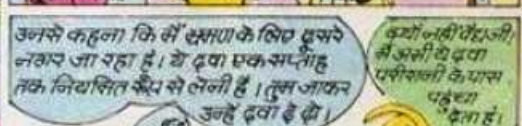 उनसे कहना कि मैं भ्रमण के लिए दूसरे
नगर जा रहा हूं। ये दवा एक सप्ताह
तक नियमित रूप से लेनी हैं। तुम जाकर
उन्हें दवा दे दो।
क्यों नहीं वैद्यजी!
मैं अभी ये दवा
परीरानी के पास
पहुंचा
देता हूं।